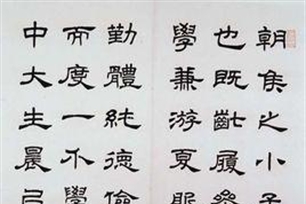 朝侯之小子
也既齔履參
學兼游夏服
勤體純德儉
而度一不學
中大生晨